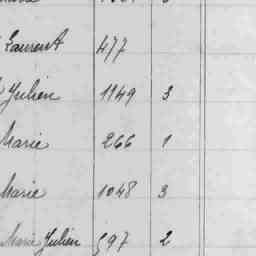 Laurent 477
Julien 1149 3
Marie 266 1
Marie 1048 3
Marie Julien 597 2